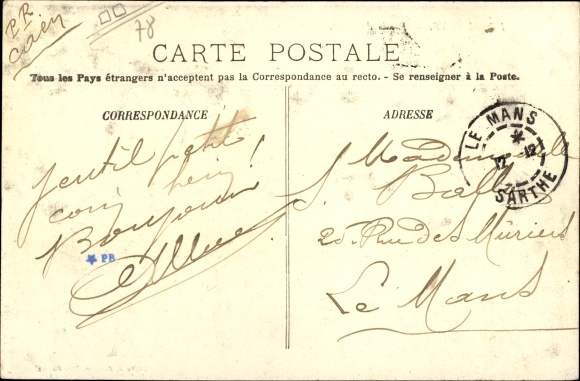 PR
Caen
78
CARTE POSTALE
Tous les Pays étrangers n'acceptent pas la Correspondance au recto. - Se renseigner à la Poste.
CORRESPONDANCE
Gentil petit
coin hein !
Bonjour
PB
ADRESSE
LE MANS
12
SARTHE
Mademoiselle
20 Rue des Mûriers
Le Mans